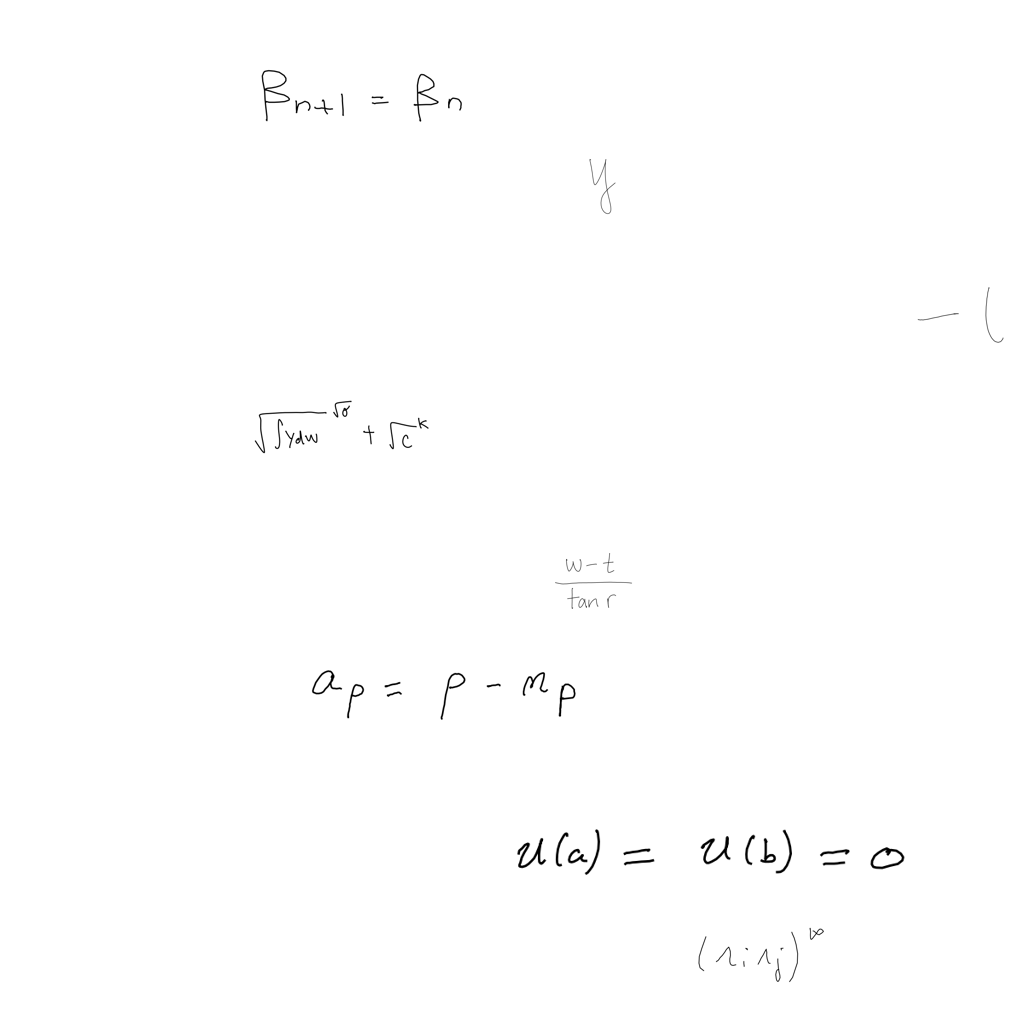 β_{n+1} = β_n
y
√(∫ydw)^{√σ} + √c^k
(w-t)/(tan r)
a_p = p - n_p
u(a) = u(b) = 0